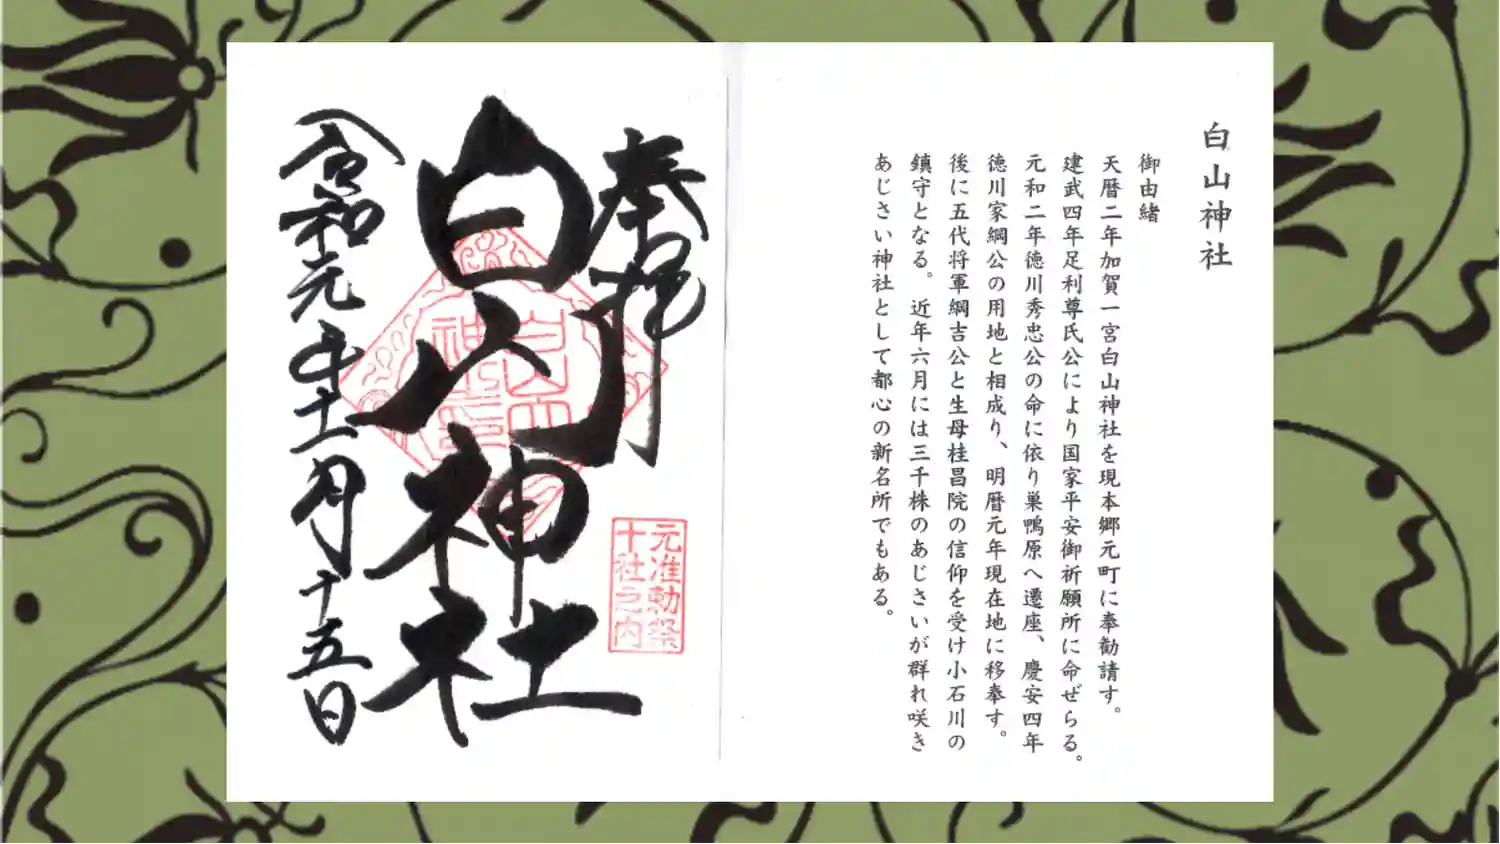 白山神社
御由緒
天暦二年加賀一宮白山神社を現本郷元町に奉勧請す。
建武四年足利尊氏公により国家平安御祈願所に命ぜらる。
元和二年徳川秀忠公の命に依り巣鴨原へ遷座、慶安四年
徳川家綱公の用地と相成り、明暦元年現在地に移奉す。
後に五代将軍綱吉公と生母桂昌院の信仰を受け小石川の
鎮守となる。近年六月には三千株のあじさいが群れ咲き
あじさい神社として都心の新名所でもある。
奉拝
白山神社
令和元年十一月十五日
白山神社
元准勅祭
十社之内